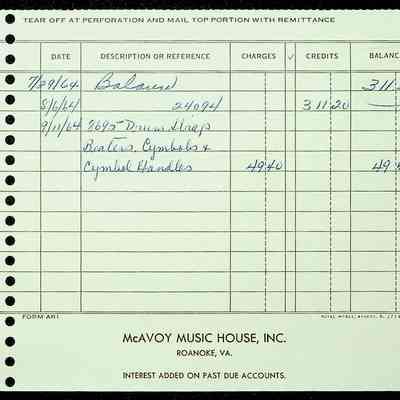 TEAR OFF AT PERFORATION AND MAIL TOP PORTION WITH REMITTANCE
DATE DESCRIPTION OR REFERENCE CHARGES ✓ CREDITS BALANC
7/29/64 Balance 311.2
8/6/64 24094 311.20
9/11/64 2695 Drum Strap
Beaters, Cymbols &
Cymbol Handles 49.40 49.4
FORM AR1
McAVOY MUSIC HOUSE, INC.
ROANOKE, VA.
INTEREST ADDED ON PAST DUE ACCOUNTS.